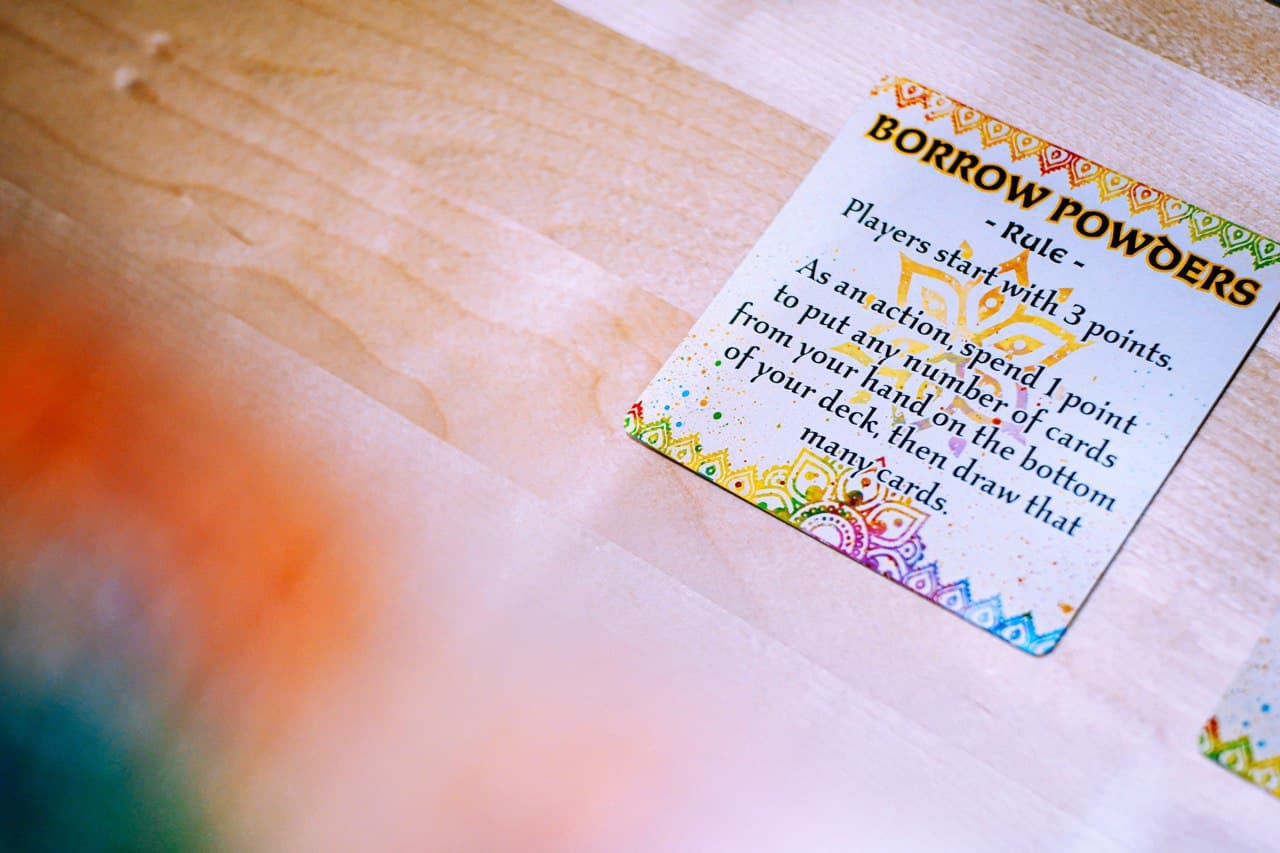 BORROW POWDERS
- RULE -
Players start with 3 points.
As an action, spend 1 point
to put any number of cards
from your hand on the bottom
of your deck, then draw that
many cards.